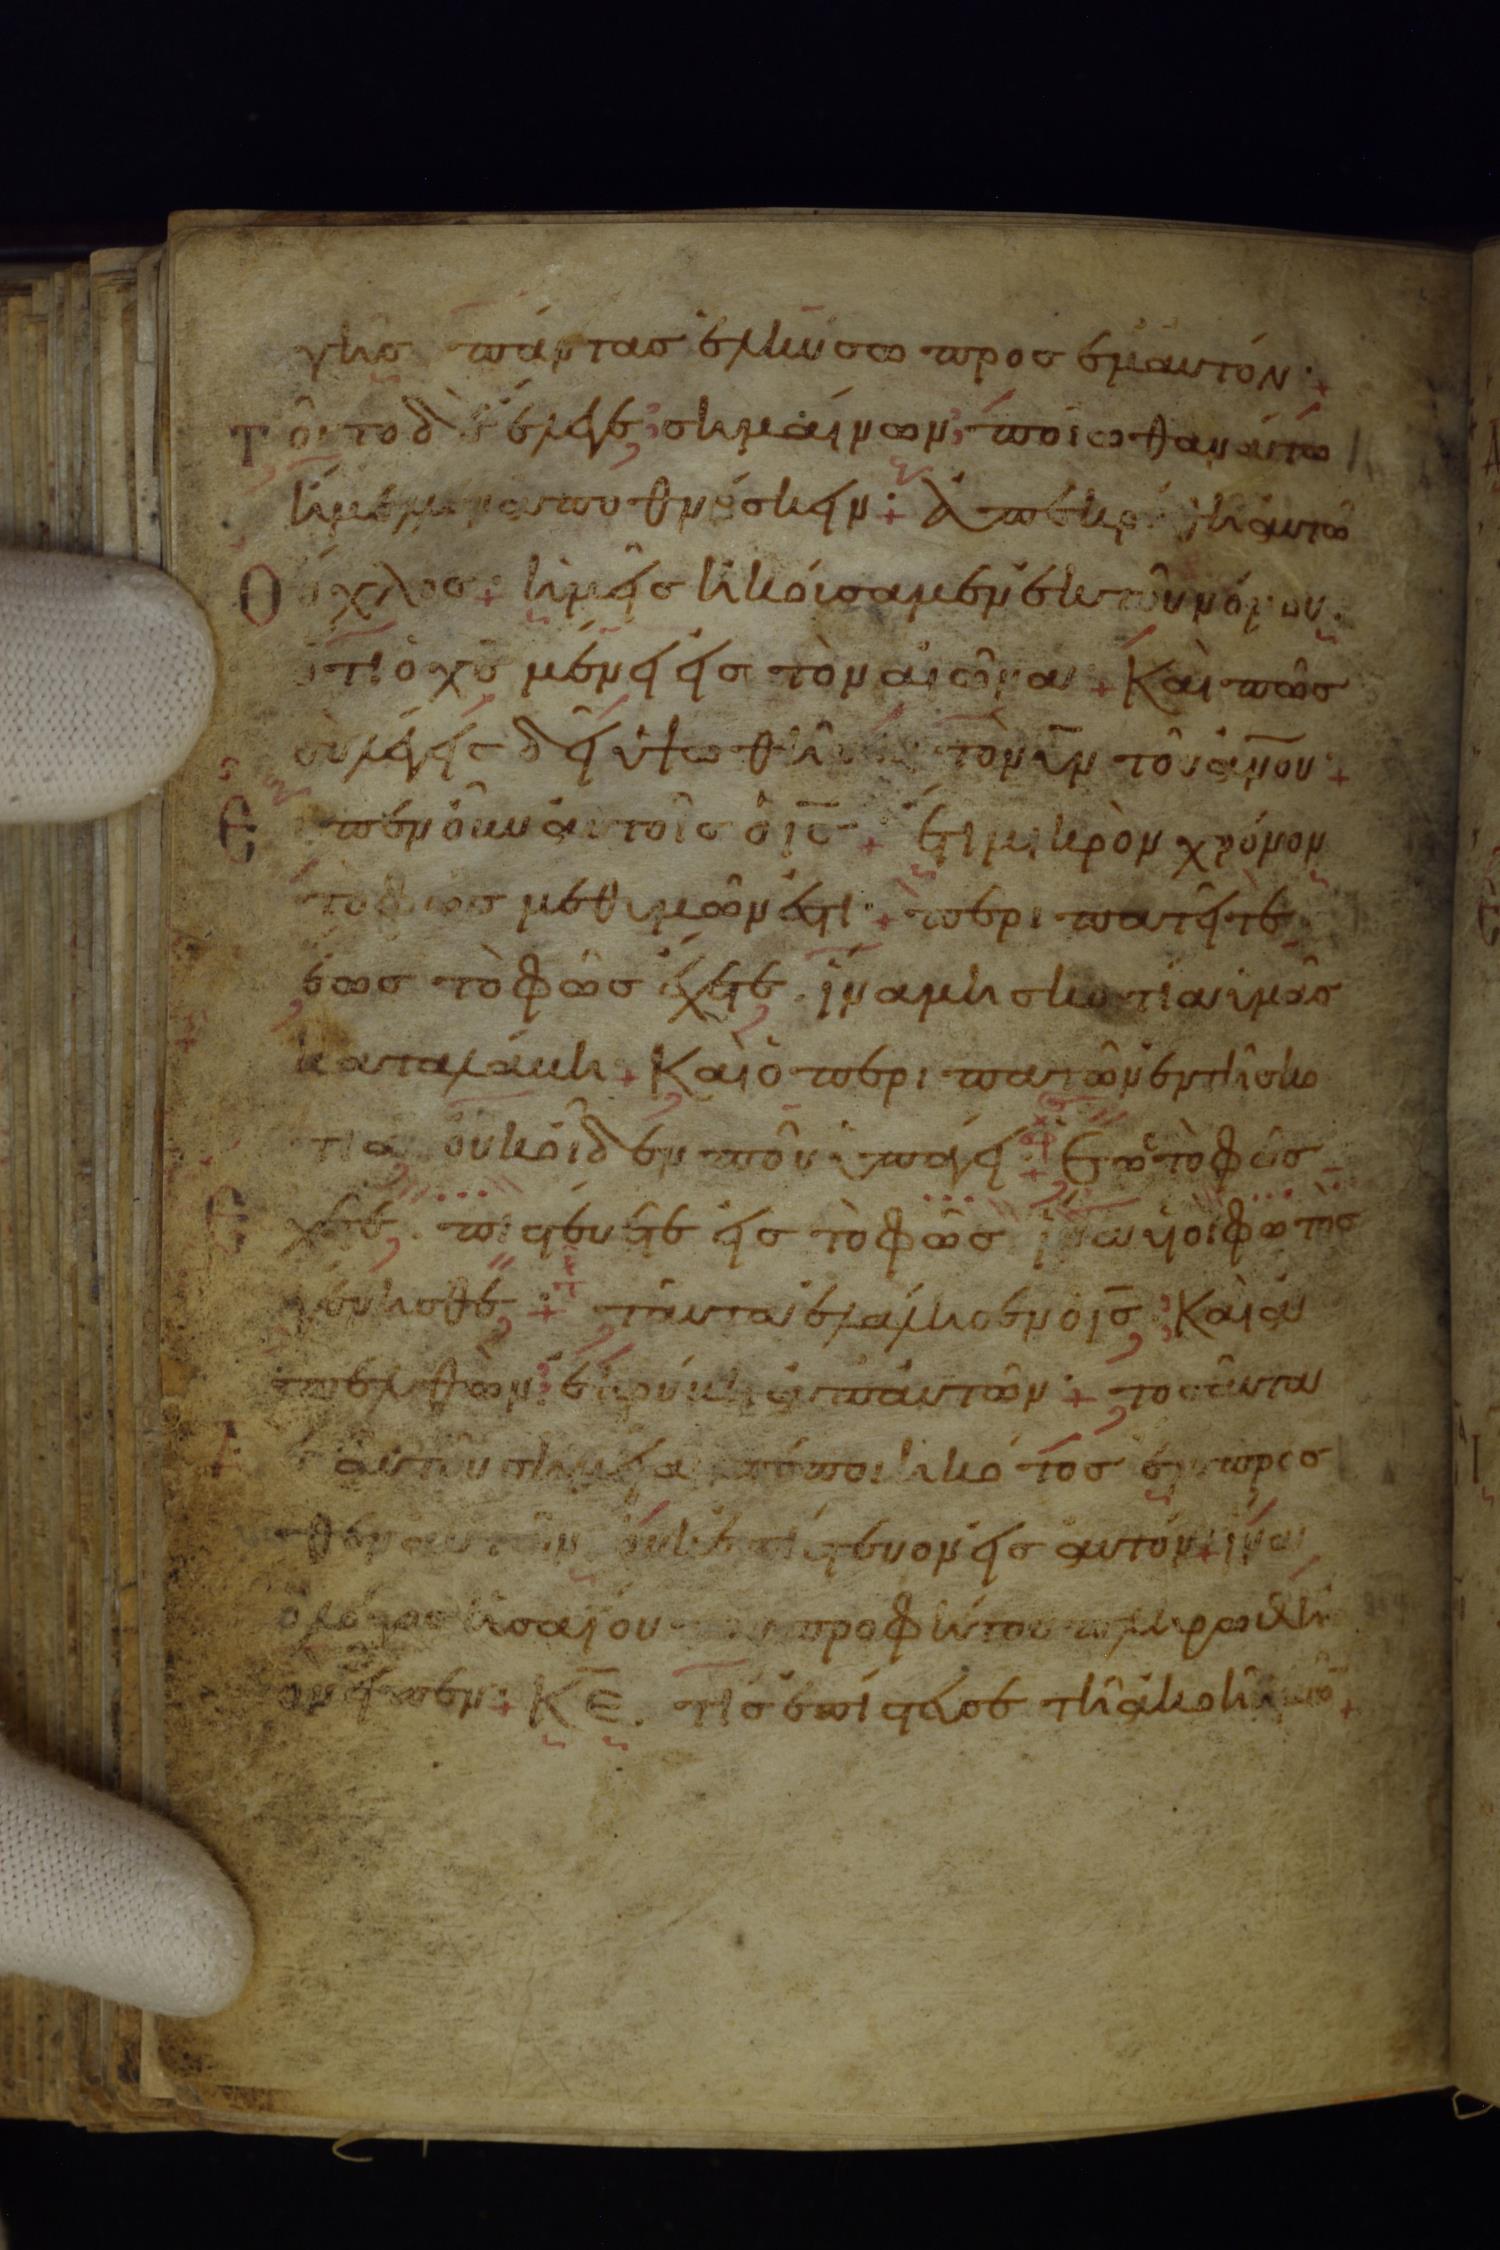 γῆς πάντας ἑλκύσω προς ἐμαυτόν·
Τοῦτο δὲ ἔλεγε σημαίνων ποίω θανάτω
ἤμελλεν ἀποθνήσκειν· ἀπεκρίθη αὐτῶ
Ὁ ὄχλος· ἡμεῖς ἠκούσαμεν ἐκ τοῦ νόμου·
ὅτι ὁ χς μένει εἰς τὸν αἰῶνα· Καὶ πῶς
σὺ λέγεις δεῖ ὑψωθῆναι τὸν υν τοῦ ανου·
Εἶπεν οὖν αὐτοῖς ὁ ις· ἔτι μικρὸν χρόνον
τὸ φῶς μεθ' ὑμῶν ἐστι· περιπατεῖτε
ἕως τὸ φῶς ἔχετε· ἵνα μὴ σκοτία ὑμᾶς
καταλάβη· Καὶ ὁ περιπατῶν ἐν τῆ σκο
τία οὐκ οἶδεν ποῦ ὑπάγει· ἕως τὸ φῶς
Ἔχετε· πιστεύετε εἰς τὸ φῶς ἵνα υἱοὶ φωτὸς
γένησθε· ταῦτα ἐλάλησεν ὁ ις· Καὶ ἀ
πελθὼν ἐκρύβη ἀπ' αὐτῶν· τοσαῦτα
δὲ αὐτοῦ σημεῖα πεποιηκότος ἔμπροσ
θεν αὐτῶν οὐκ ἐπίστευον εἰς αὐτόν· ἵνα
ὁ λόγος ἠσαΐου τοῦ προφήτου πληρωθῆ
ὃν εἶπεν· ΚΕ· τίς ἐπίστευσε τῆ ἀκοῆ ἡμῶν·